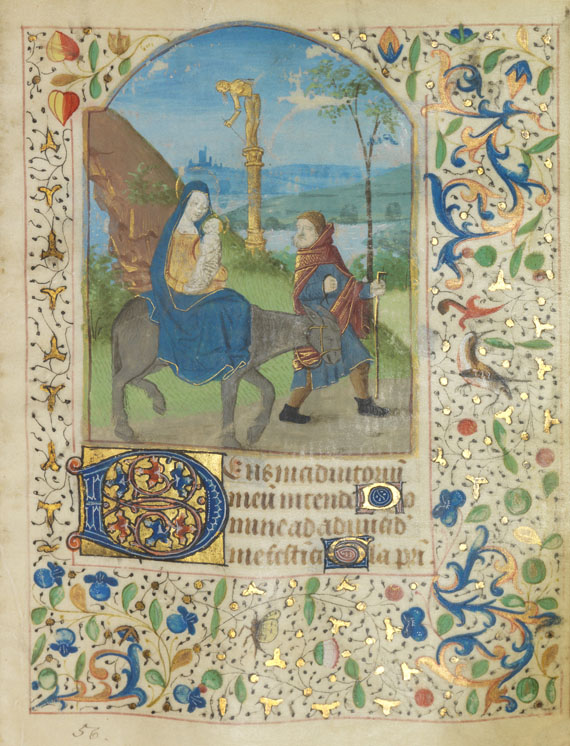 Deus in adiutoriu
meu intende Do
mine ad adiuuad
me festina Gla pri
56.